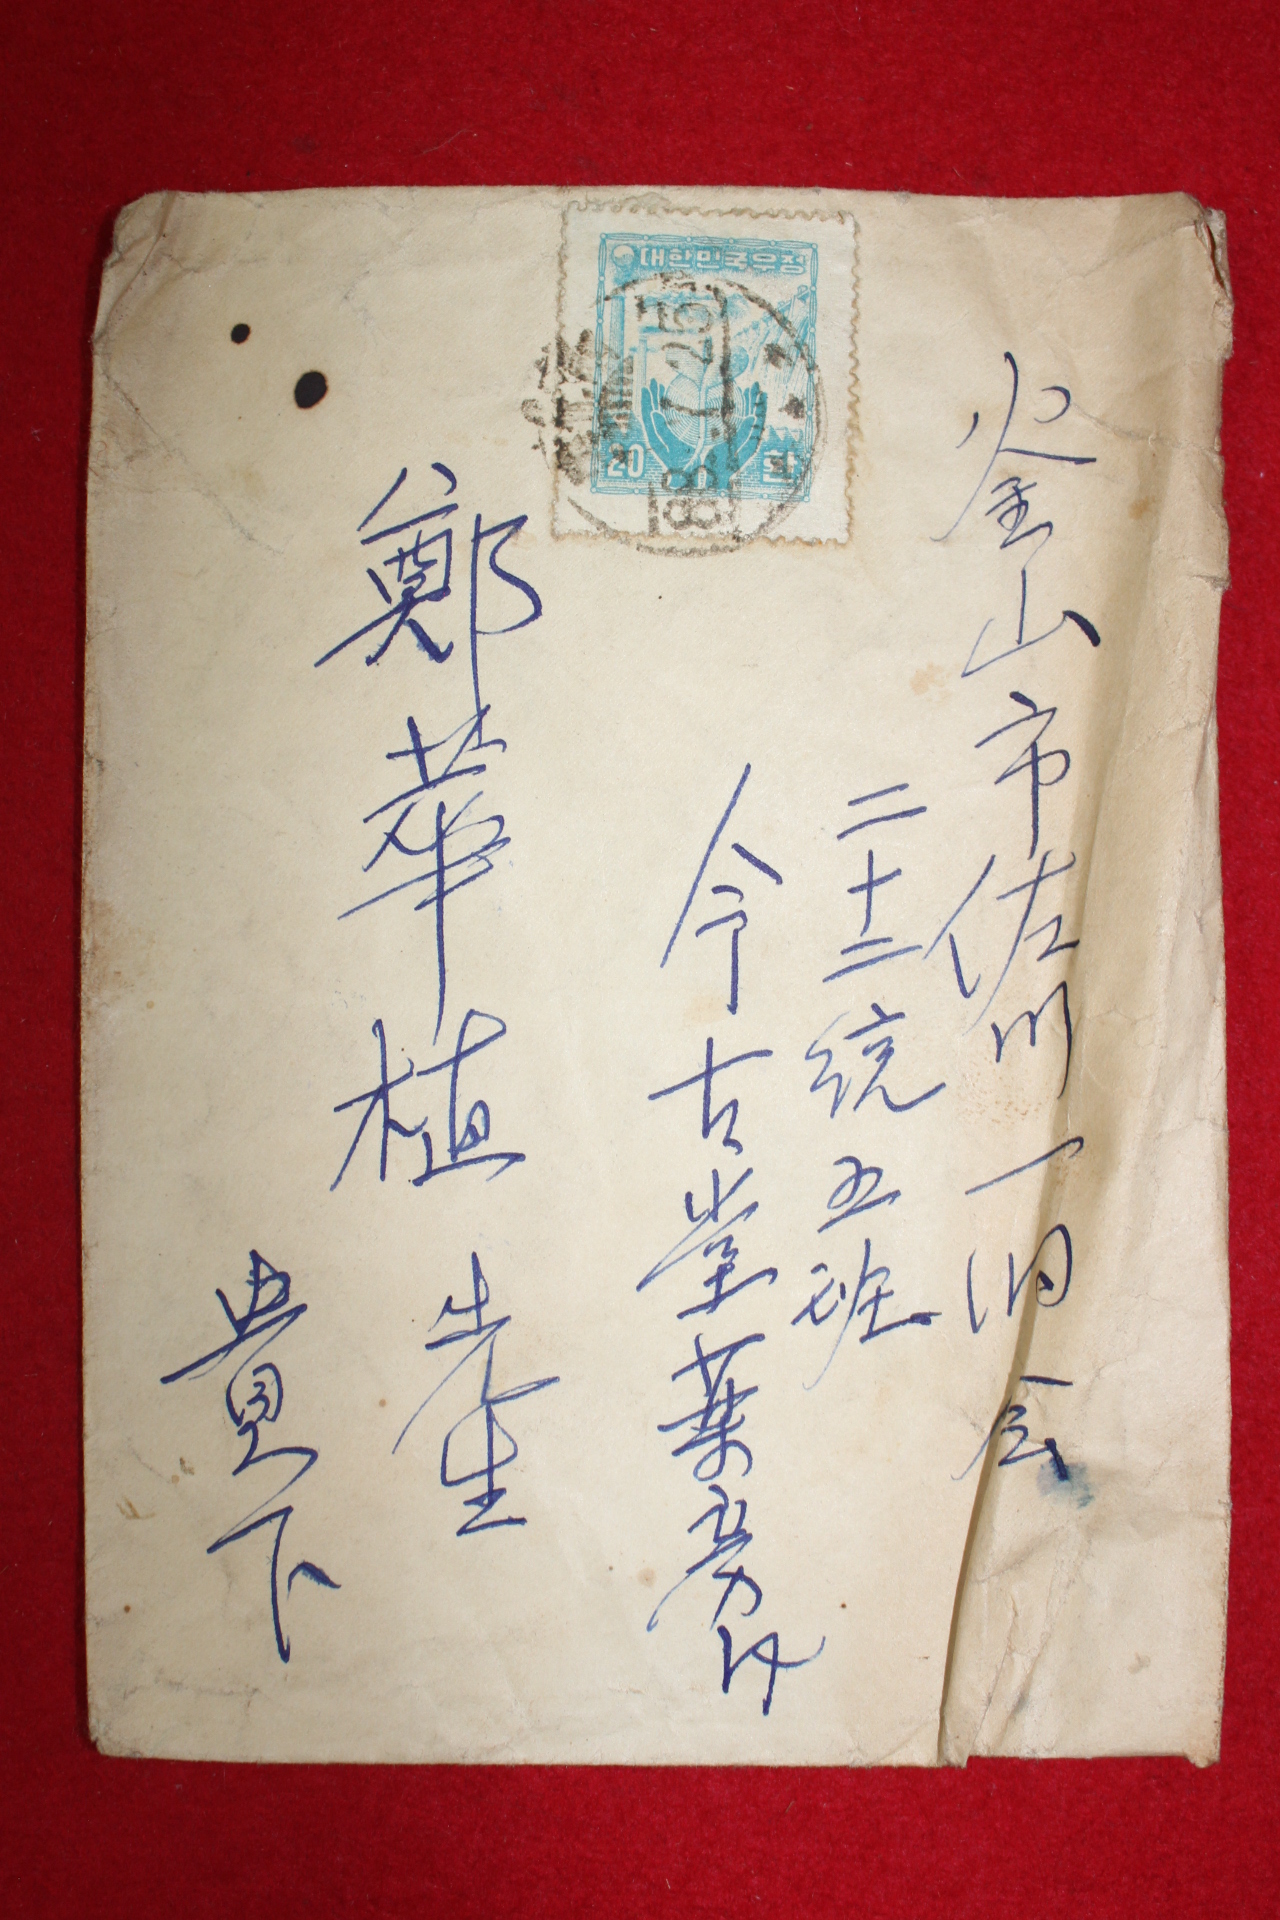 대한민국우정
20 환
釜山市佐川一洞会
二十二統五班
今古堂薬房内
鄭華植 先生
貴下